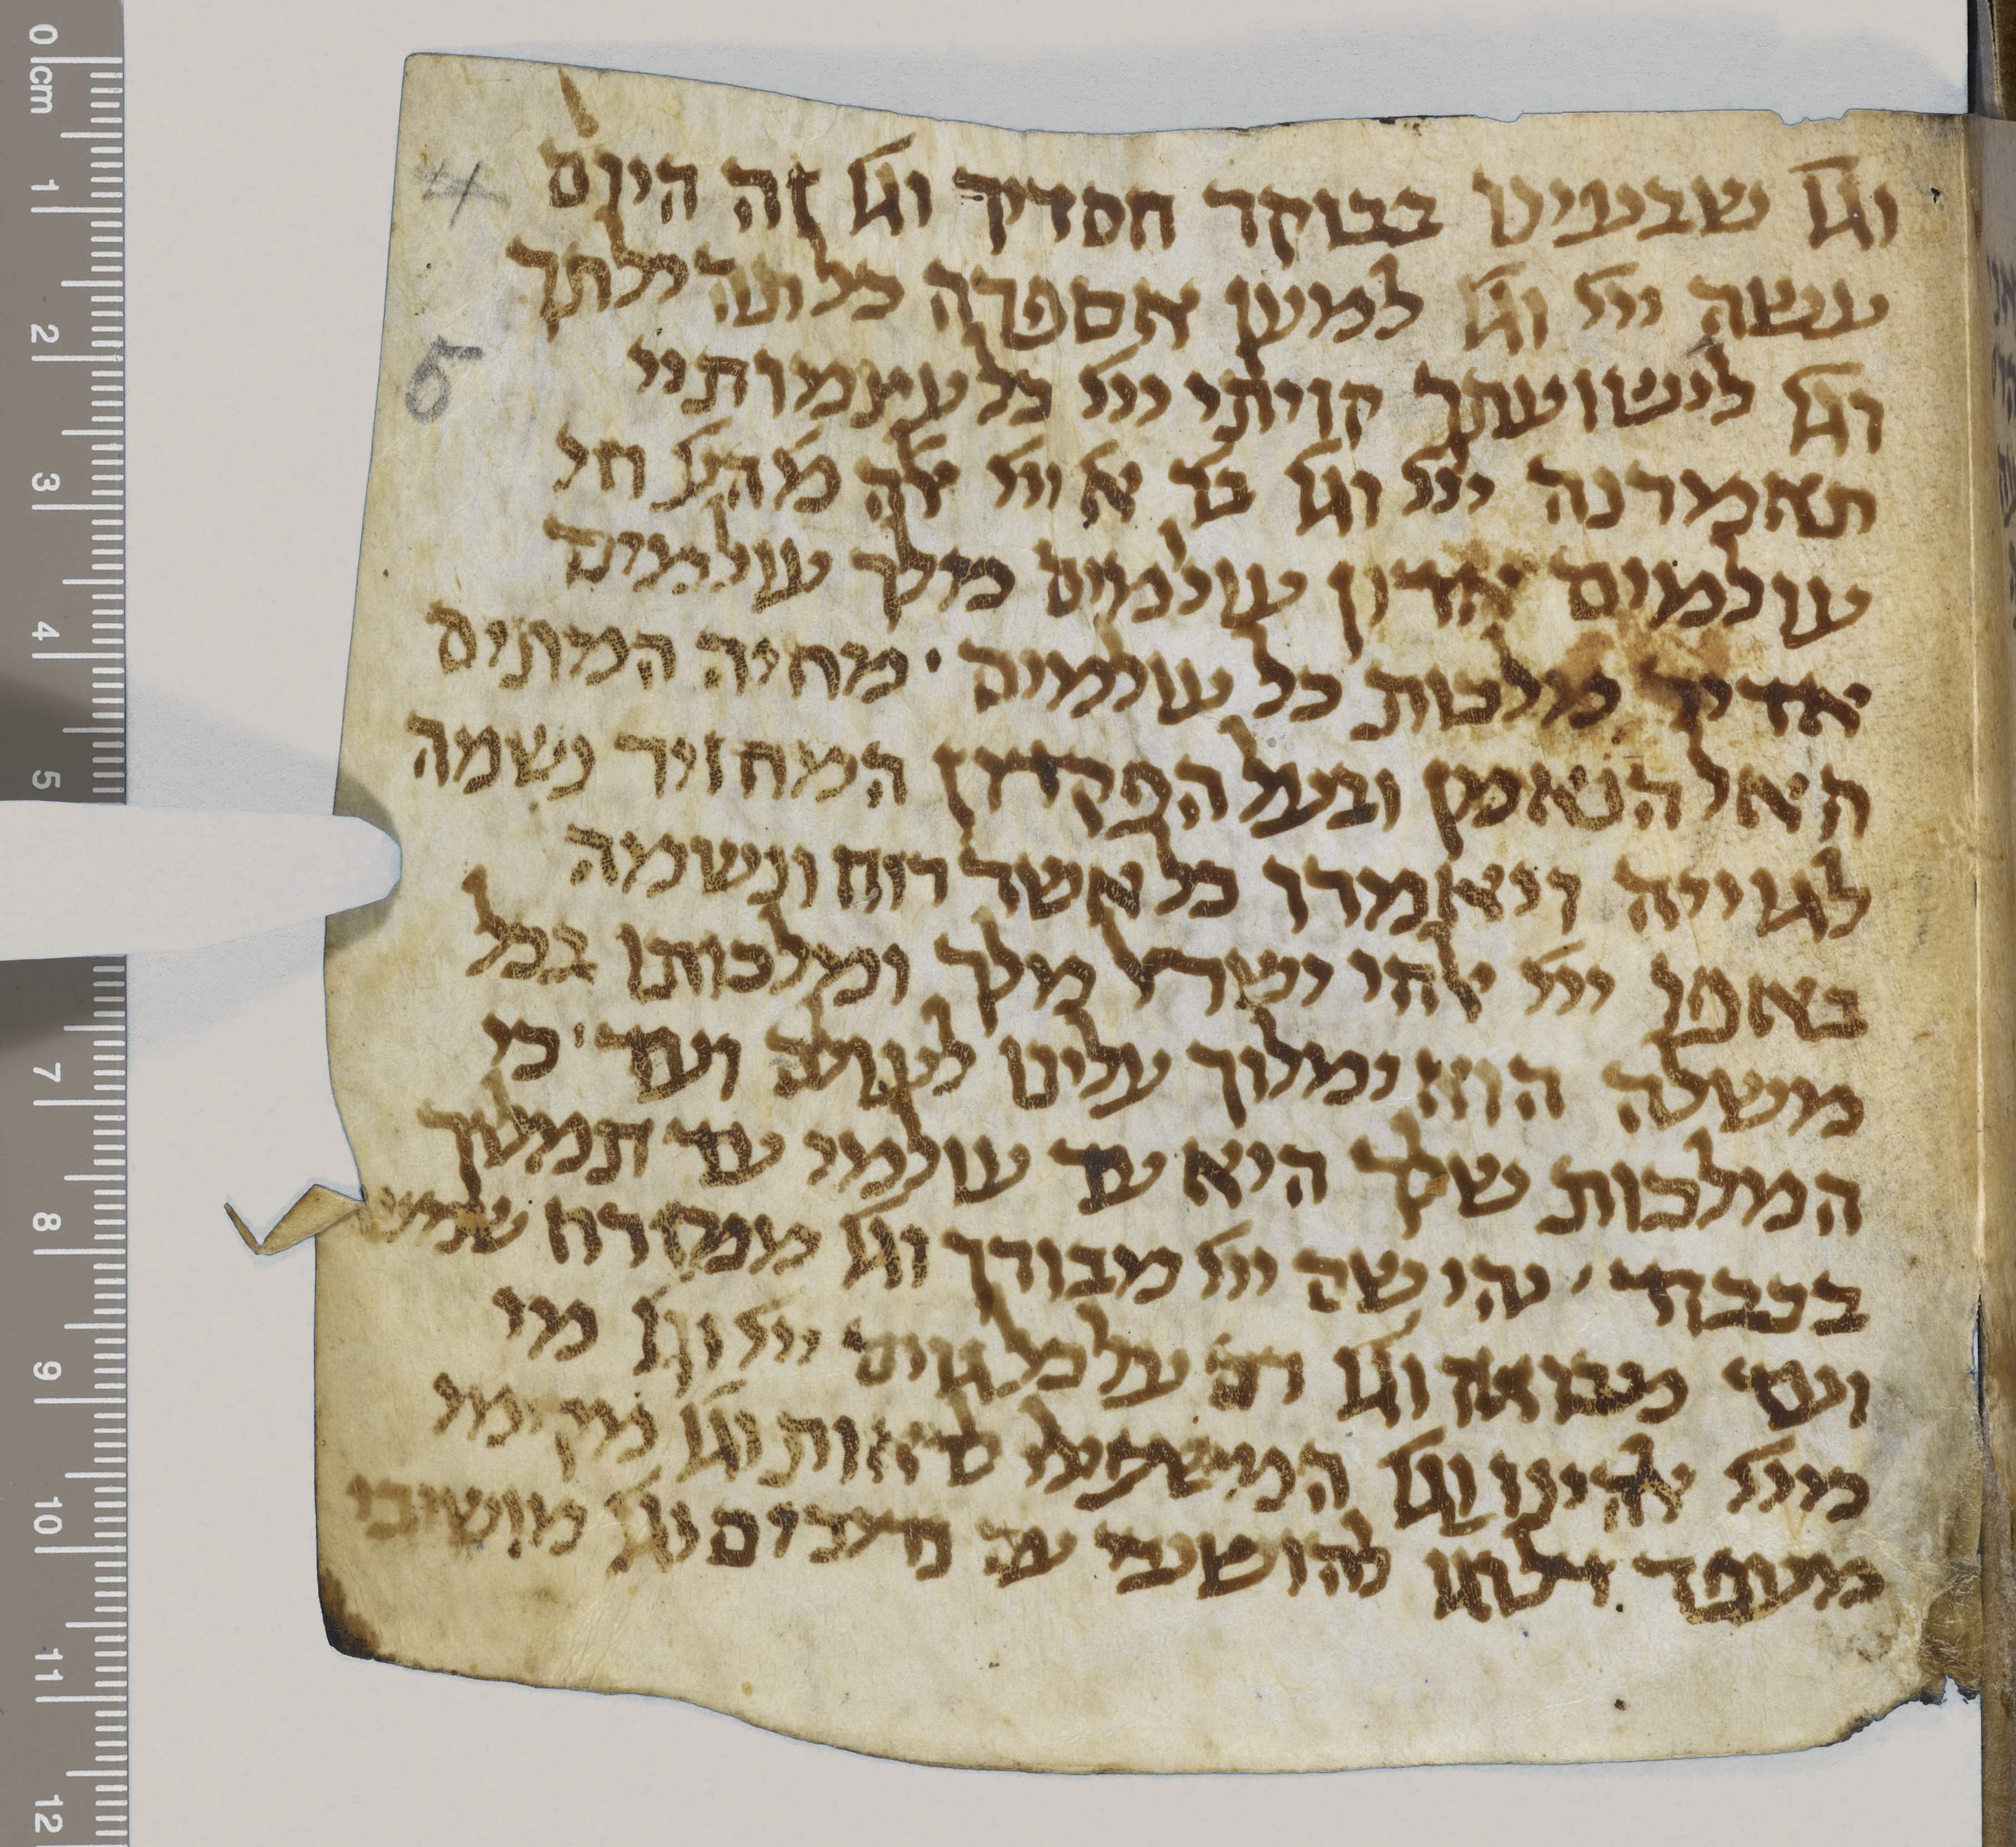 וגו שבעינו בבוקר חסדיך וגו זה היום
עשה ייי וגו למען אספרה כל תהילתך
וגו לישועתך קויתי ייי כל עצמותיי
תאמרנה ייי וגו בר א ייי אלה מה על חל
עולמים אדון עולמים מלך עולמים
אדיר מלכות כל עולמים · מחיה המתים
האל הנאמן ובעל הפקדון המחזיר נשמה
לגוייה ויאמרו כל אשר רוח ונשמה
באפו ייי אלהי ישראל מלך ומלכותו בכל
משלה הוא ימלוך עלינו לעולם ועד · כי
המלכות שלך היא עד עולמי עד תמלוך
בכבוד · יהי שה ייי מבורך וגו ממזרח שמש
ועד מבואו וגו רם על כל גוים ייי וגו מי
כייי אלהינו וגו המשפילי לראות וגו מקימי
מעפר דל וגו להושיבי עם נדיבים וגו מושיבי